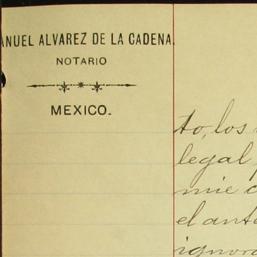 ANUEL ALVAREZ DE LA CADENA,
NOTARIO
MEXICO.
to, los
legal
mie
el ant
ignor